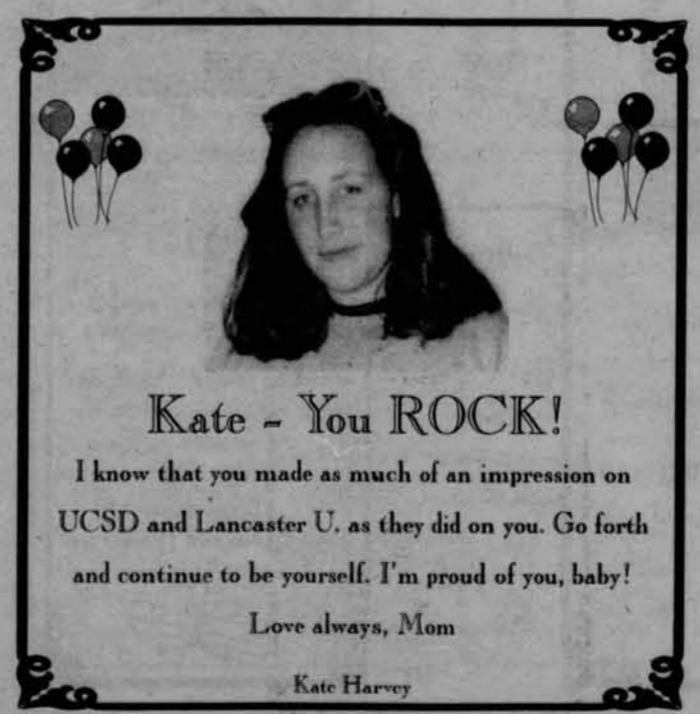 Kate - You ROCK!
I know that you made as much of an impression on
UCSD and Lancaster U. as they did on you. Go forth
and continue to be yourself. I'm proud of you, baby!
Love always, Mom
Kate Harvey